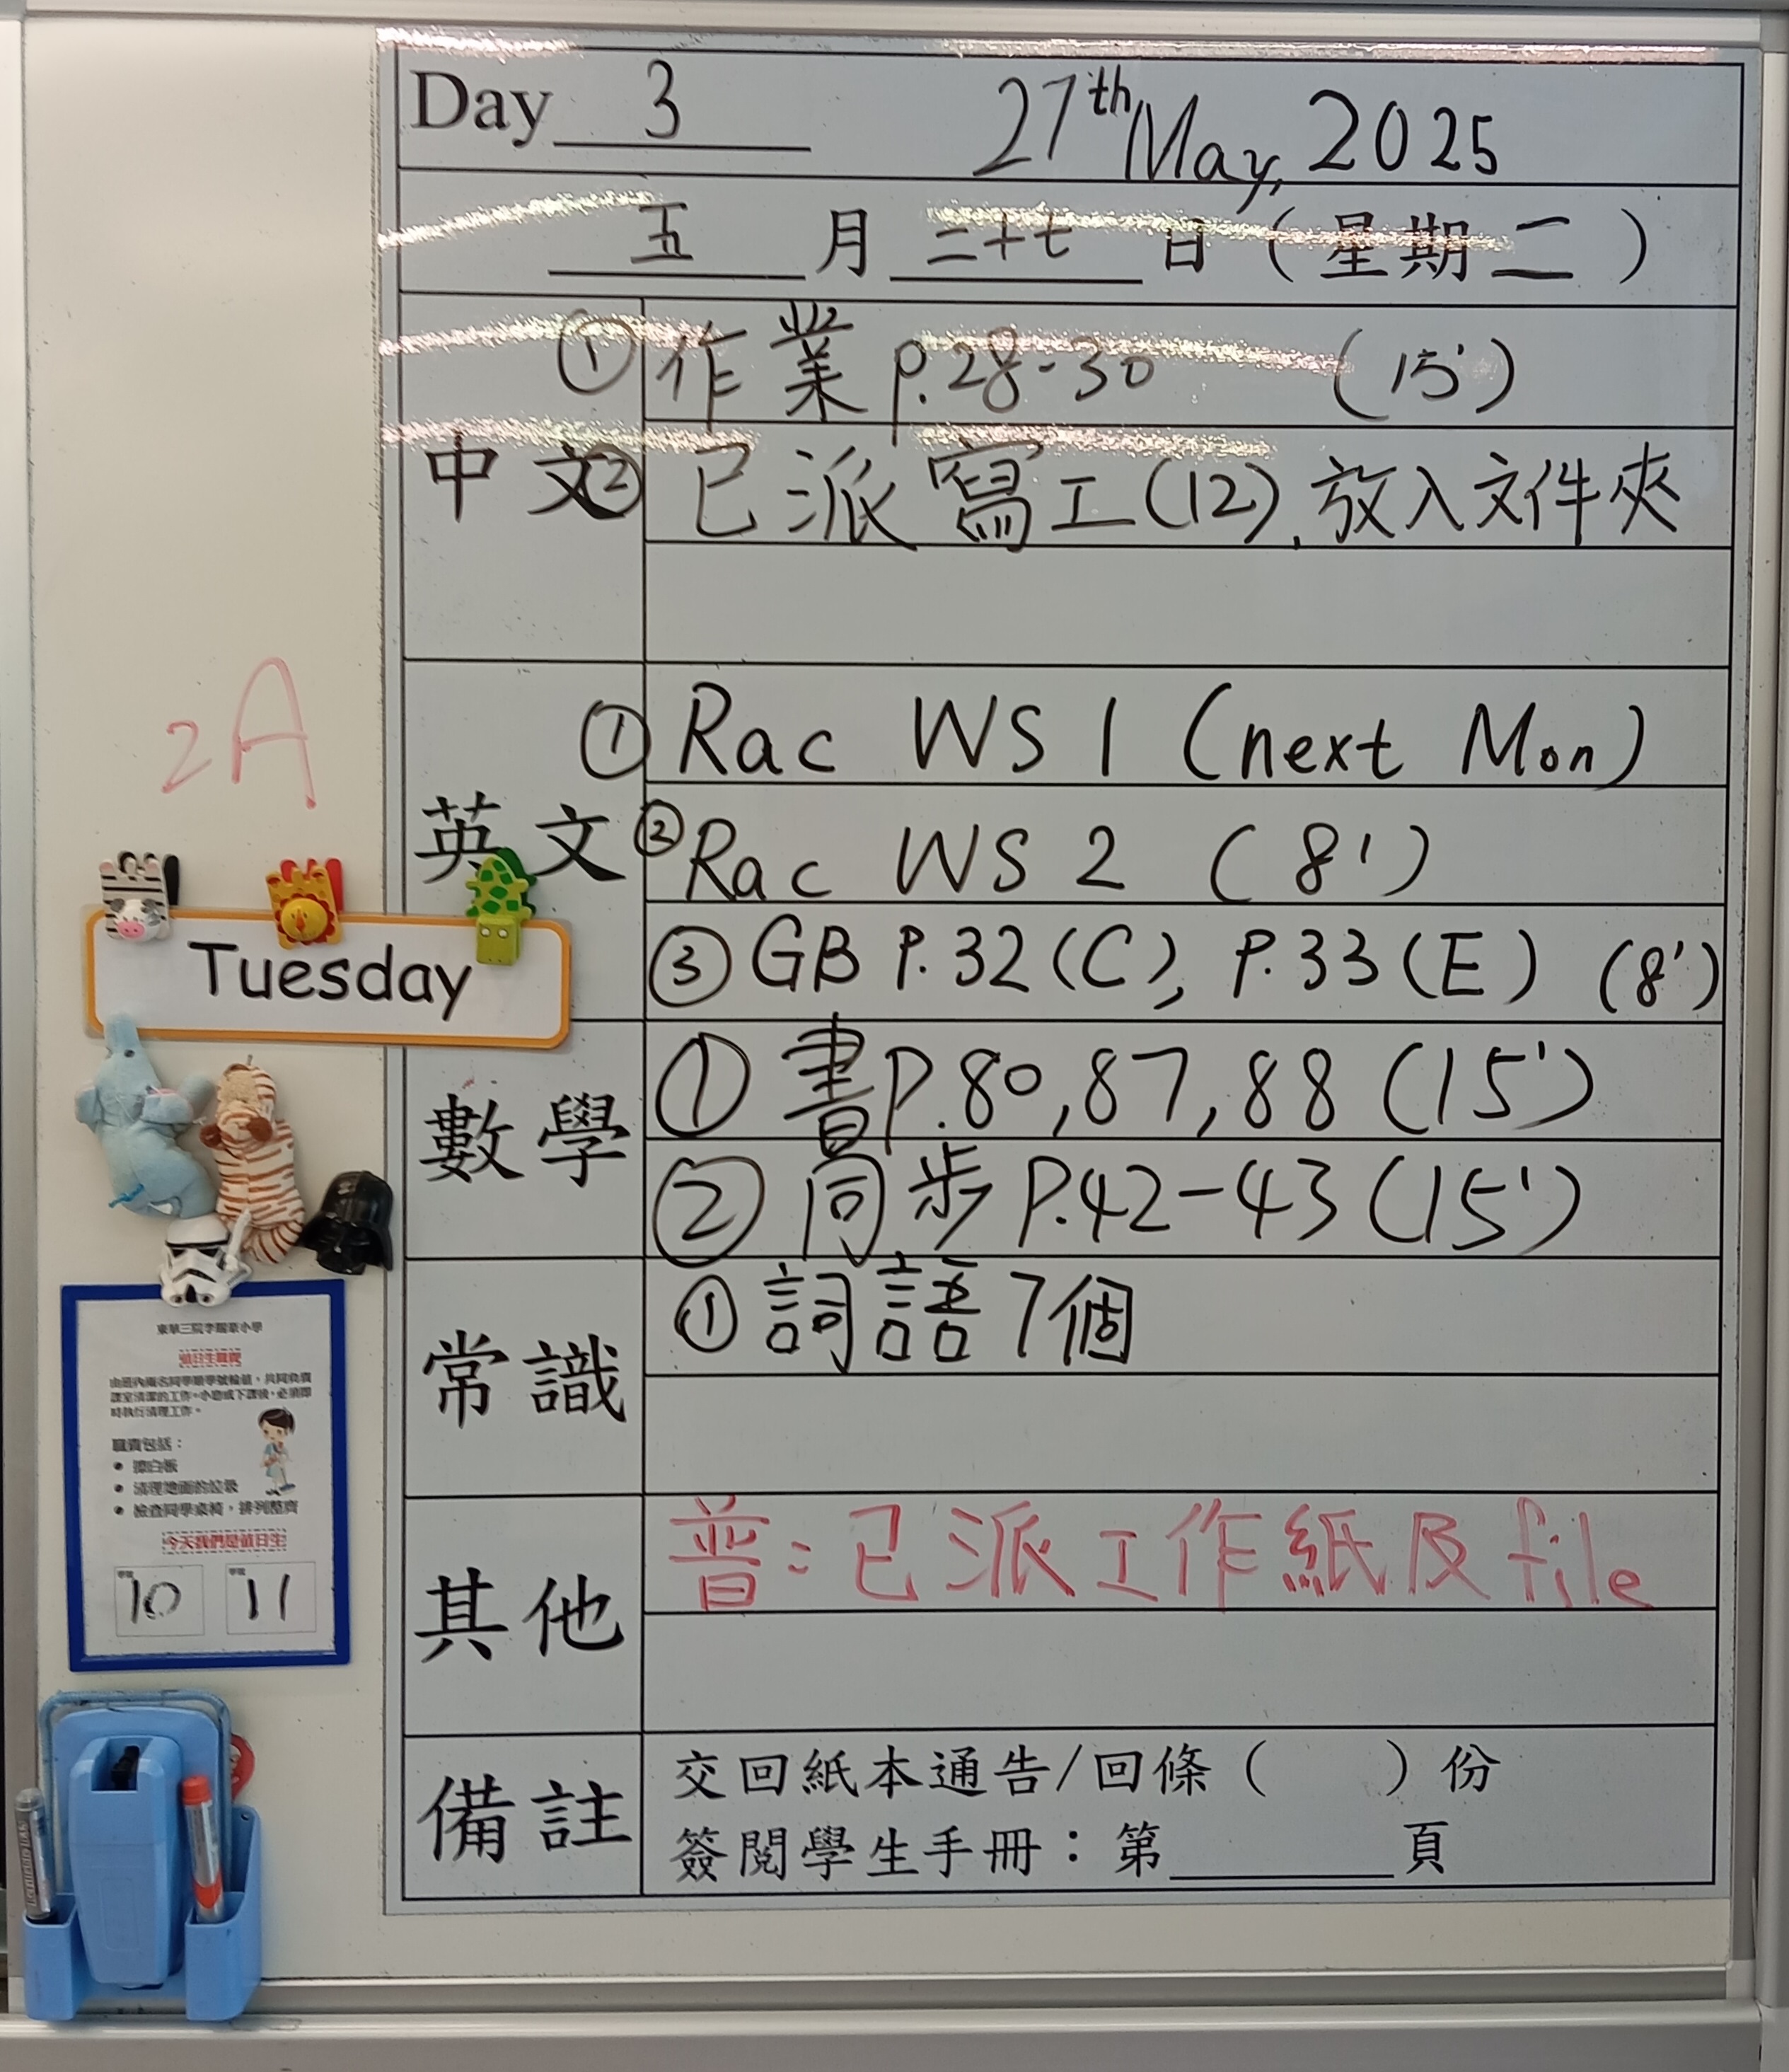 Day 3 27th May, 2025
五 月 二十七 日 (星期二)
中文
① 作業 p.28-30 (15')
② 已派寫工(12), 放入文件夾
英文
① Rac WS 1 (next Mon)
② Rac WS 2 (8')
③ GB P.32(C), P.33(E) (8')
數學
① 書p.80,87,88 (15')
② 同步 P.42-43 (15')
常識
① 詞語7個
其他
普:已派工作紙及file
備註
交回紙本通告/回條( )份
簽閱學生手冊:第______頁
2A
Tuesday
東華三院李賜豪小學
值日生職責
由班內兩名同學順學號輪值,共同負責
課室清潔的工作。小息或下課後,必須即
時執行清理工作。
職責包括:
• 擦白板
• 清理地面的垃圾
• 檢查同學桌椅,排列整齊
今天我們是值日生
學號 10 學號 11